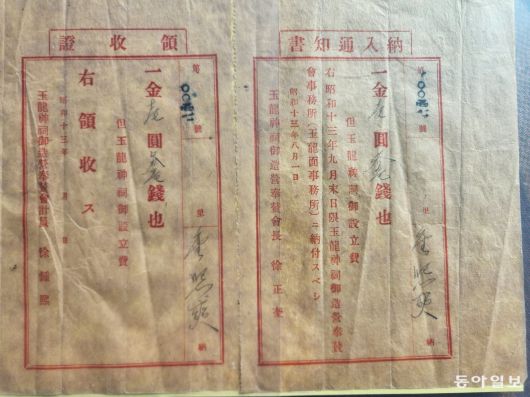 納入通知書
第 號 里 納
一金 圓 錢也
但玉龍神祠御設立費
右昭和十三年九月末日限玉龍神祠御造營奉贊
會事務所(玉龍面事務所)ニ納付スベシ
昭和十三年八月一日
玉龍神祠御造營奉贊會長 徐正奎
領收證
第 號 里 納
一金 圓 錢也
但玉龍神祠御設立費
右領收ス
昭和十三年 月 日
玉龍神祠御造營奉贊會計員 徐
동아일보